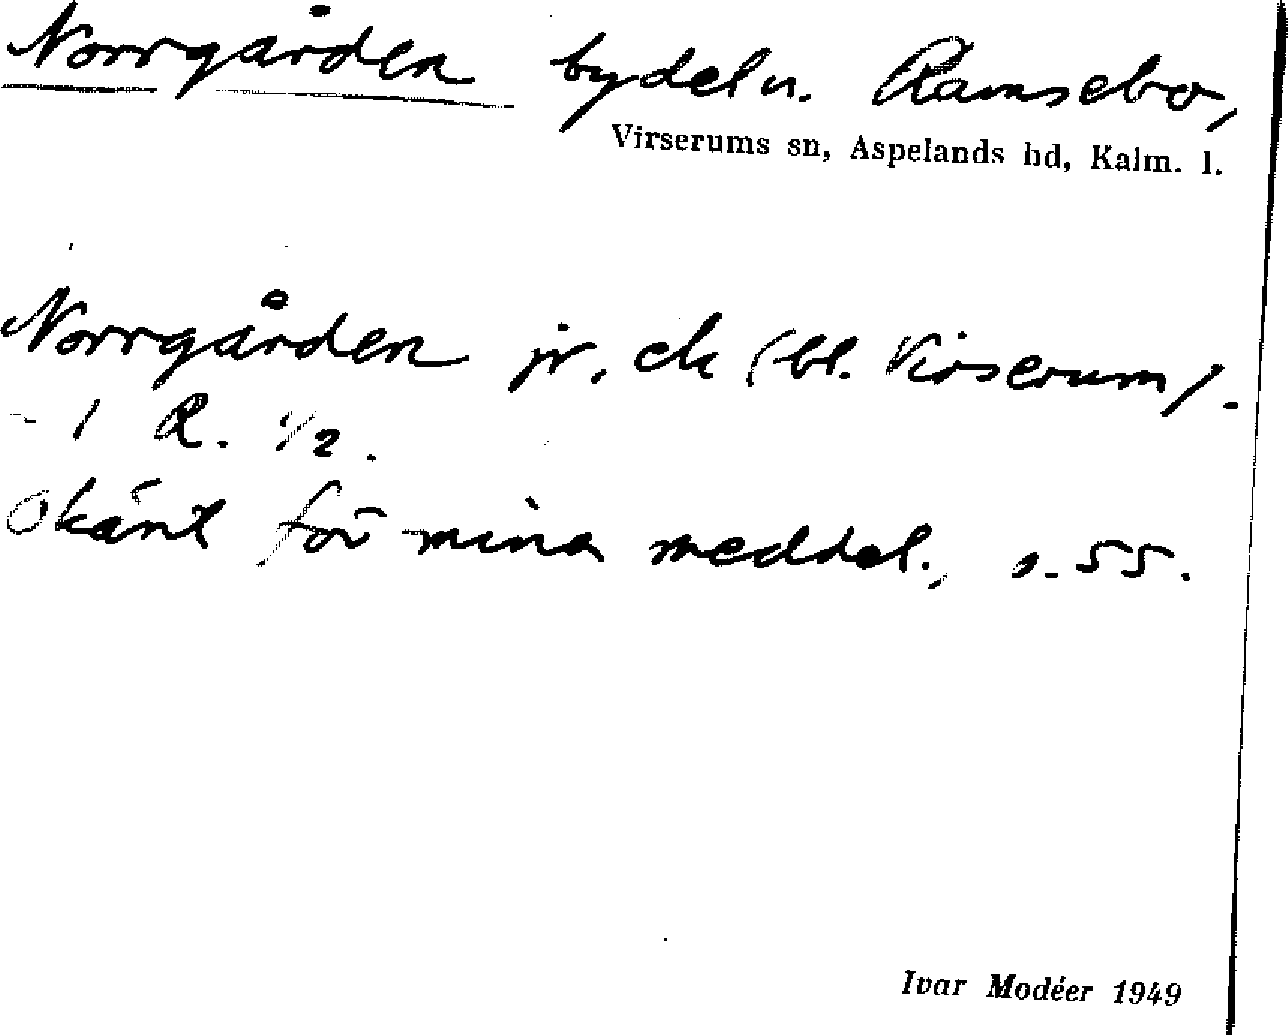 Norrgården bydeln. Ramsebo,
Virserums sn, Aspelands hd, Kalm. l.
Norrgården jr, ek (bl. Virserum).
- 1 R. 1/2.
Okänt för mina meddel., s. 55.
Ivar Modéer 1949